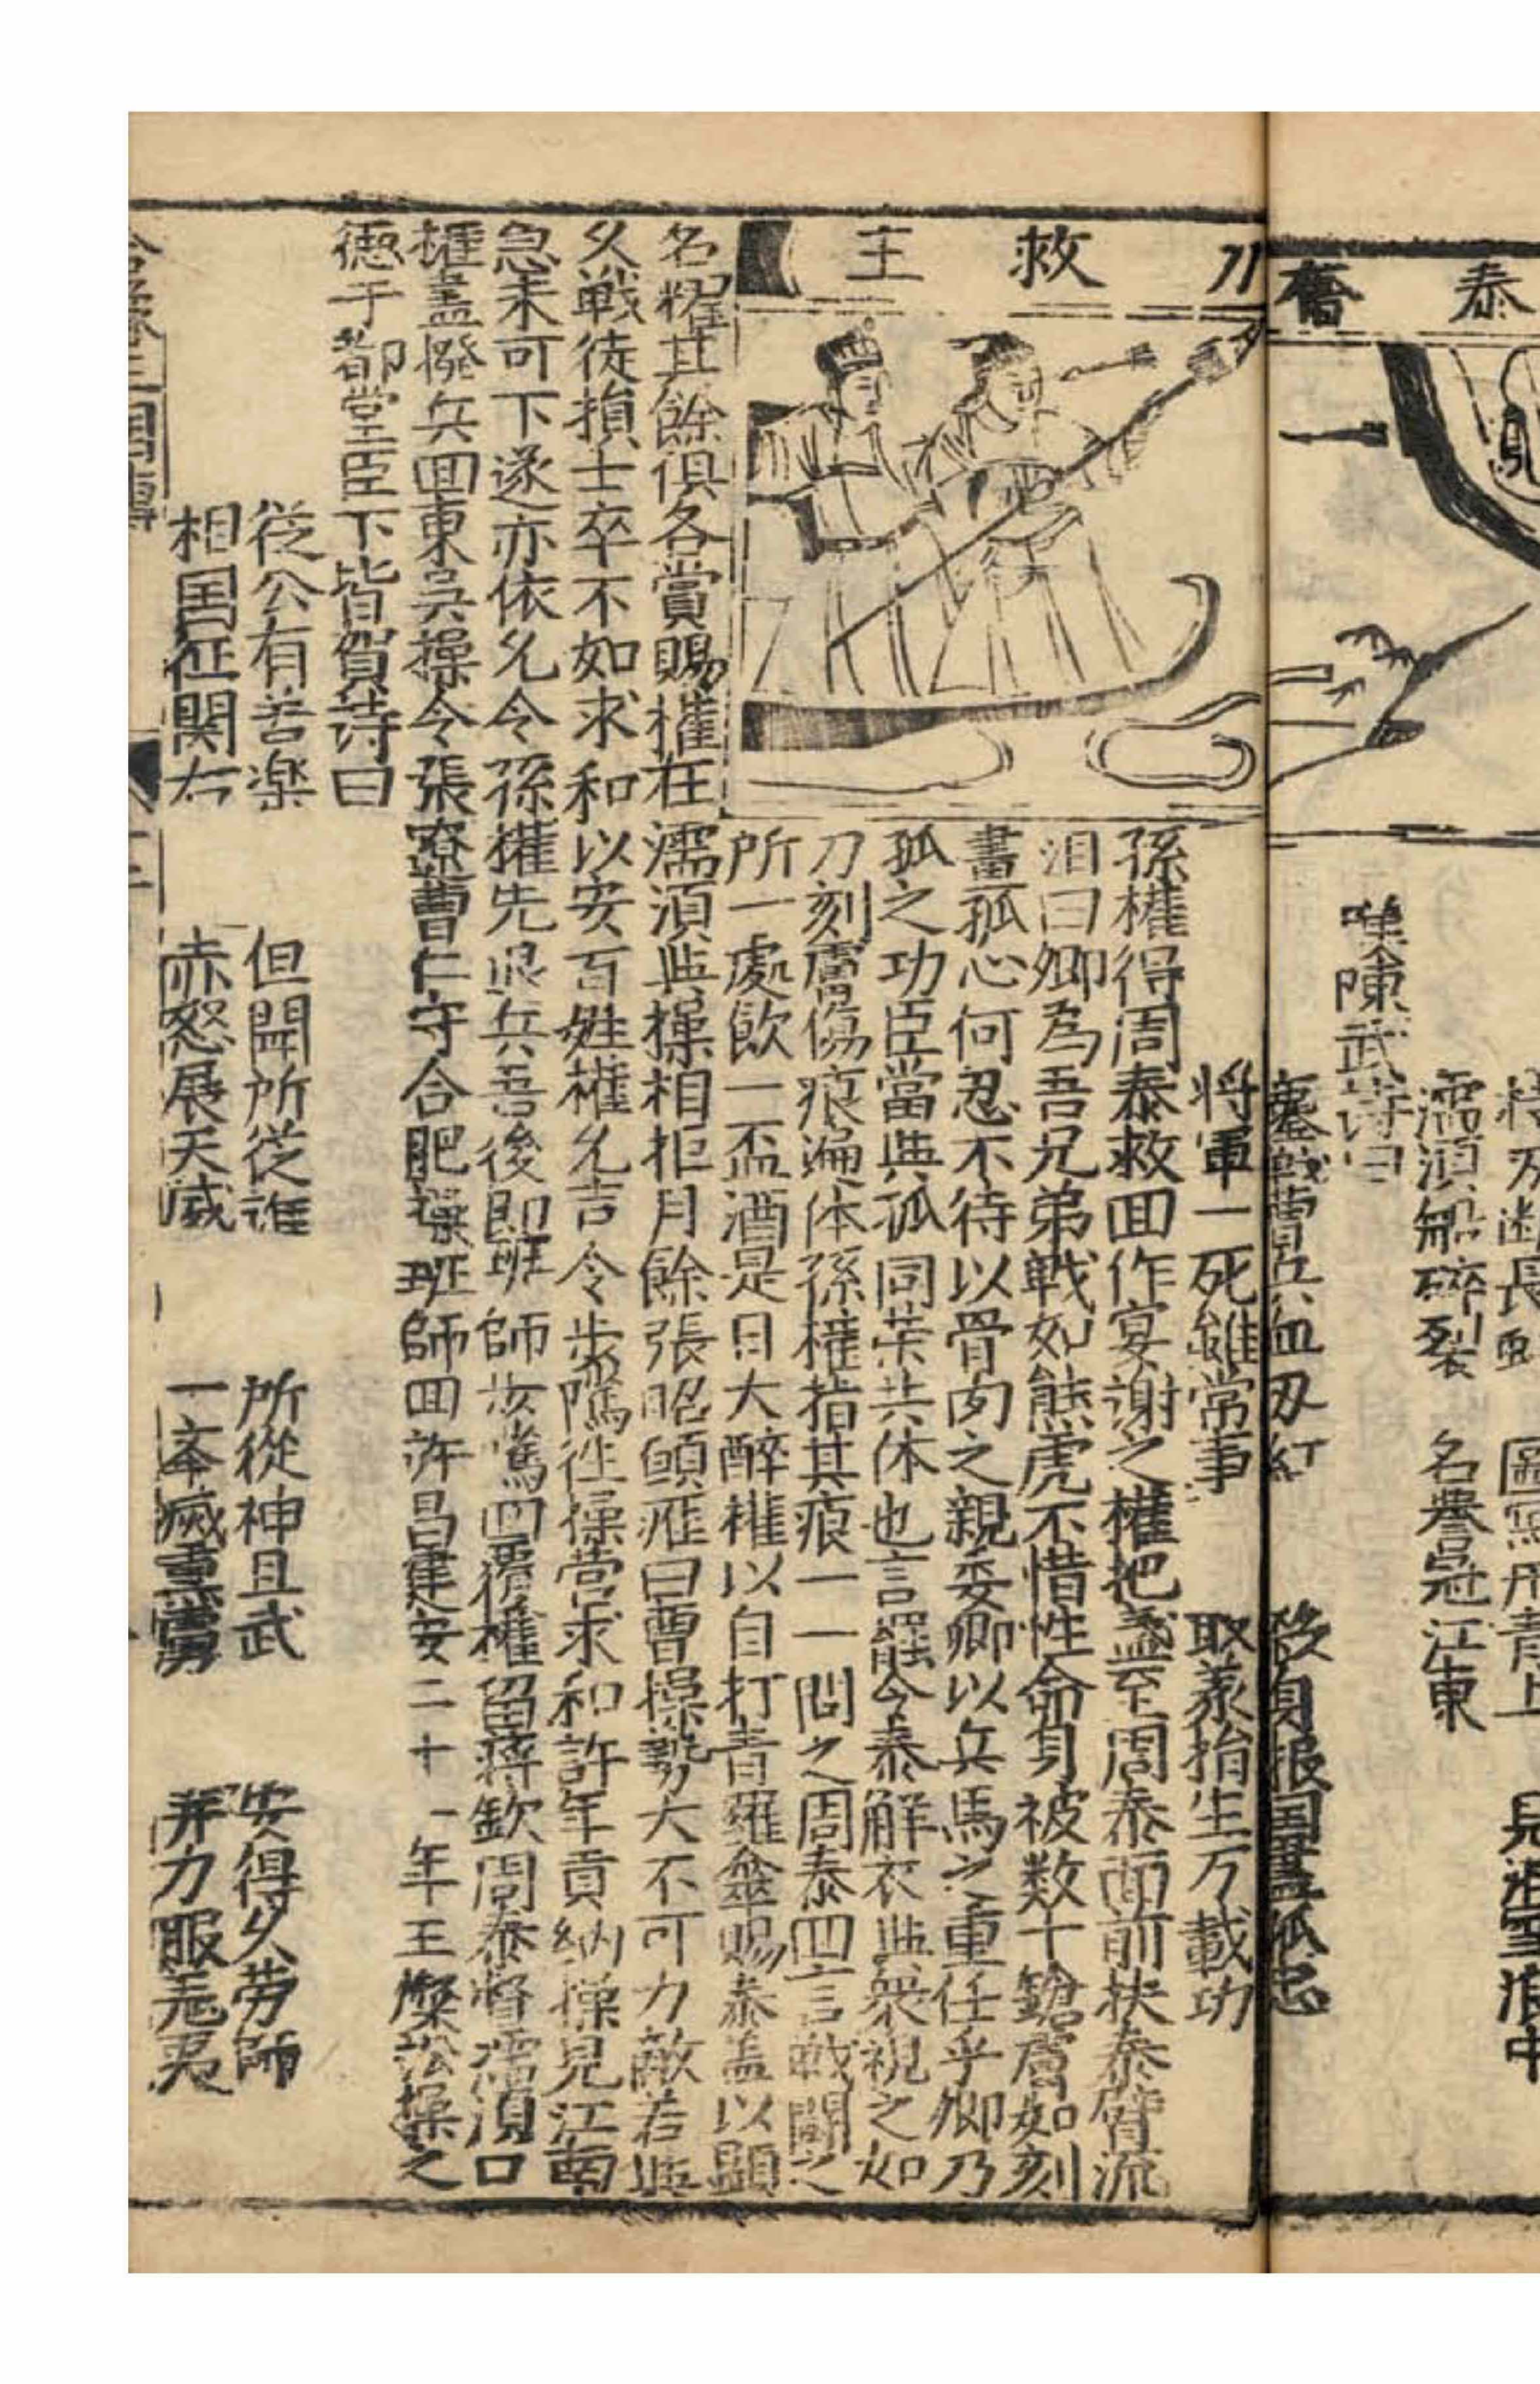 泰
奮
圖寫丹青上
濡須船碎裂　名譽冠江東
嘆陳武詩曰
鏖戰曹兵血刃紅　殺身報国盡孤忠
力
救
主
将軍一死雖常事　取義捨生万載功
孫權得周泰救回作宴謝之權把盞至周泰面前扶泰臂流
泪曰卿為吾兄弟戦如熊虎不惜性命身被数十鎗膚如刻
畫孤心何忍不待以骨肉之親委卿以兵馬之重任乎卿乃
孤之功臣當與孤同荣共体也言罷令泰解衣與衆視之如
刀刻膚傷痕遍体孫權指其痕一一問之周泰四言戦闘之
所一處飲一盃酒是日大醉權以自打青羅傘賜泰盖以顕
名耀其餘俱各賞賜權在濡湏與操相拒月餘張昭顧雍曰曹操勢大不可力敵若與
久戦徒損士卒不如求和以安百姓權允言令步隲徃操营求和許年貢納操見江南
急未可下遂亦依允令孫權先退兵吾後即班師步隲回覆權留蒋欽周泰督濡湏口
權盡撥兵回東吳操令張遼曹仁守合肥操班師回許昌建安二十一年王粲訟操之
德于都堂臣下皆賀詩曰
從公有苦楽　但聞所從誰　所從神且武　安得久劳師
相国征関右　赤怒展天威　一举滅熏虜　再力服羌夷
三国傳